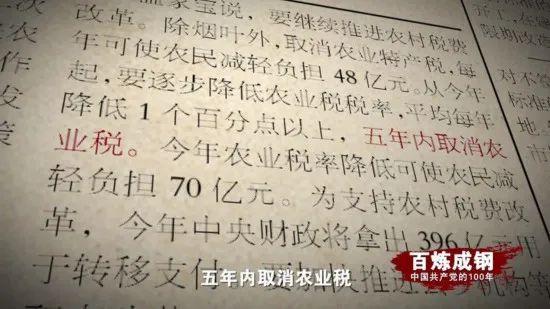 家宝说，要继续推进农村税费
改革。除烟叶外，取消农业特产税，每
年可使农民减轻负担 48 亿元。从今年
起，要逐步降低农业税税率，平均每年
降低 1 个百分点以上，五年内取消农
业税。今年农业税率降低可使农民减
轻负担 70 亿元。为支持农村税费改
革，今年中央财政将拿出 396 亿元用
于转移支付 要加快推进 机构等
次
农
作
发
策
限期改
对不等
标准
地
五年内取消农业税
百炼成钢
中国共产党的100年